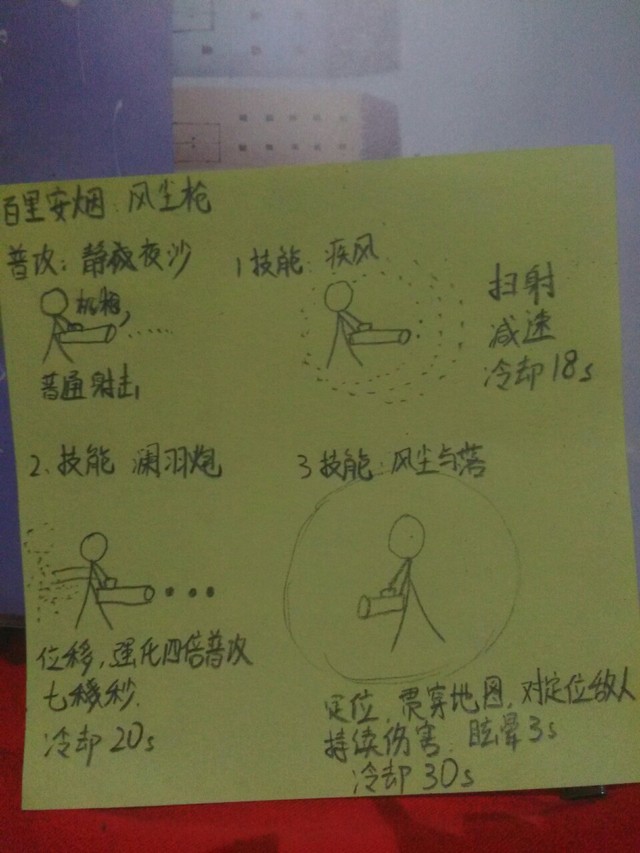 百里安烟:风尘枪
普攻:静夜沙
1技能:疾风
机枪,
普通射击
扫射
减速
冷却18s
2.技能 澜羽炮
3技能:风尘与落
位移,强化四倍普攻
七秒.
冷却20s
定位,贯穿地图,对定位敌人
持续伤害.眩晕3s
冷却30s